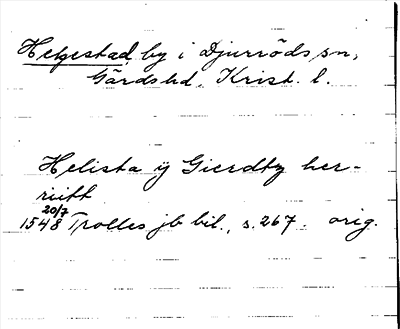 Helgestad by i Djurröds sn,
Gärds hd, Krist. l.
Helista ÿ Gierdtz her-
riitt
1548 20/7 Trolles jb bil., s. 267. orig.